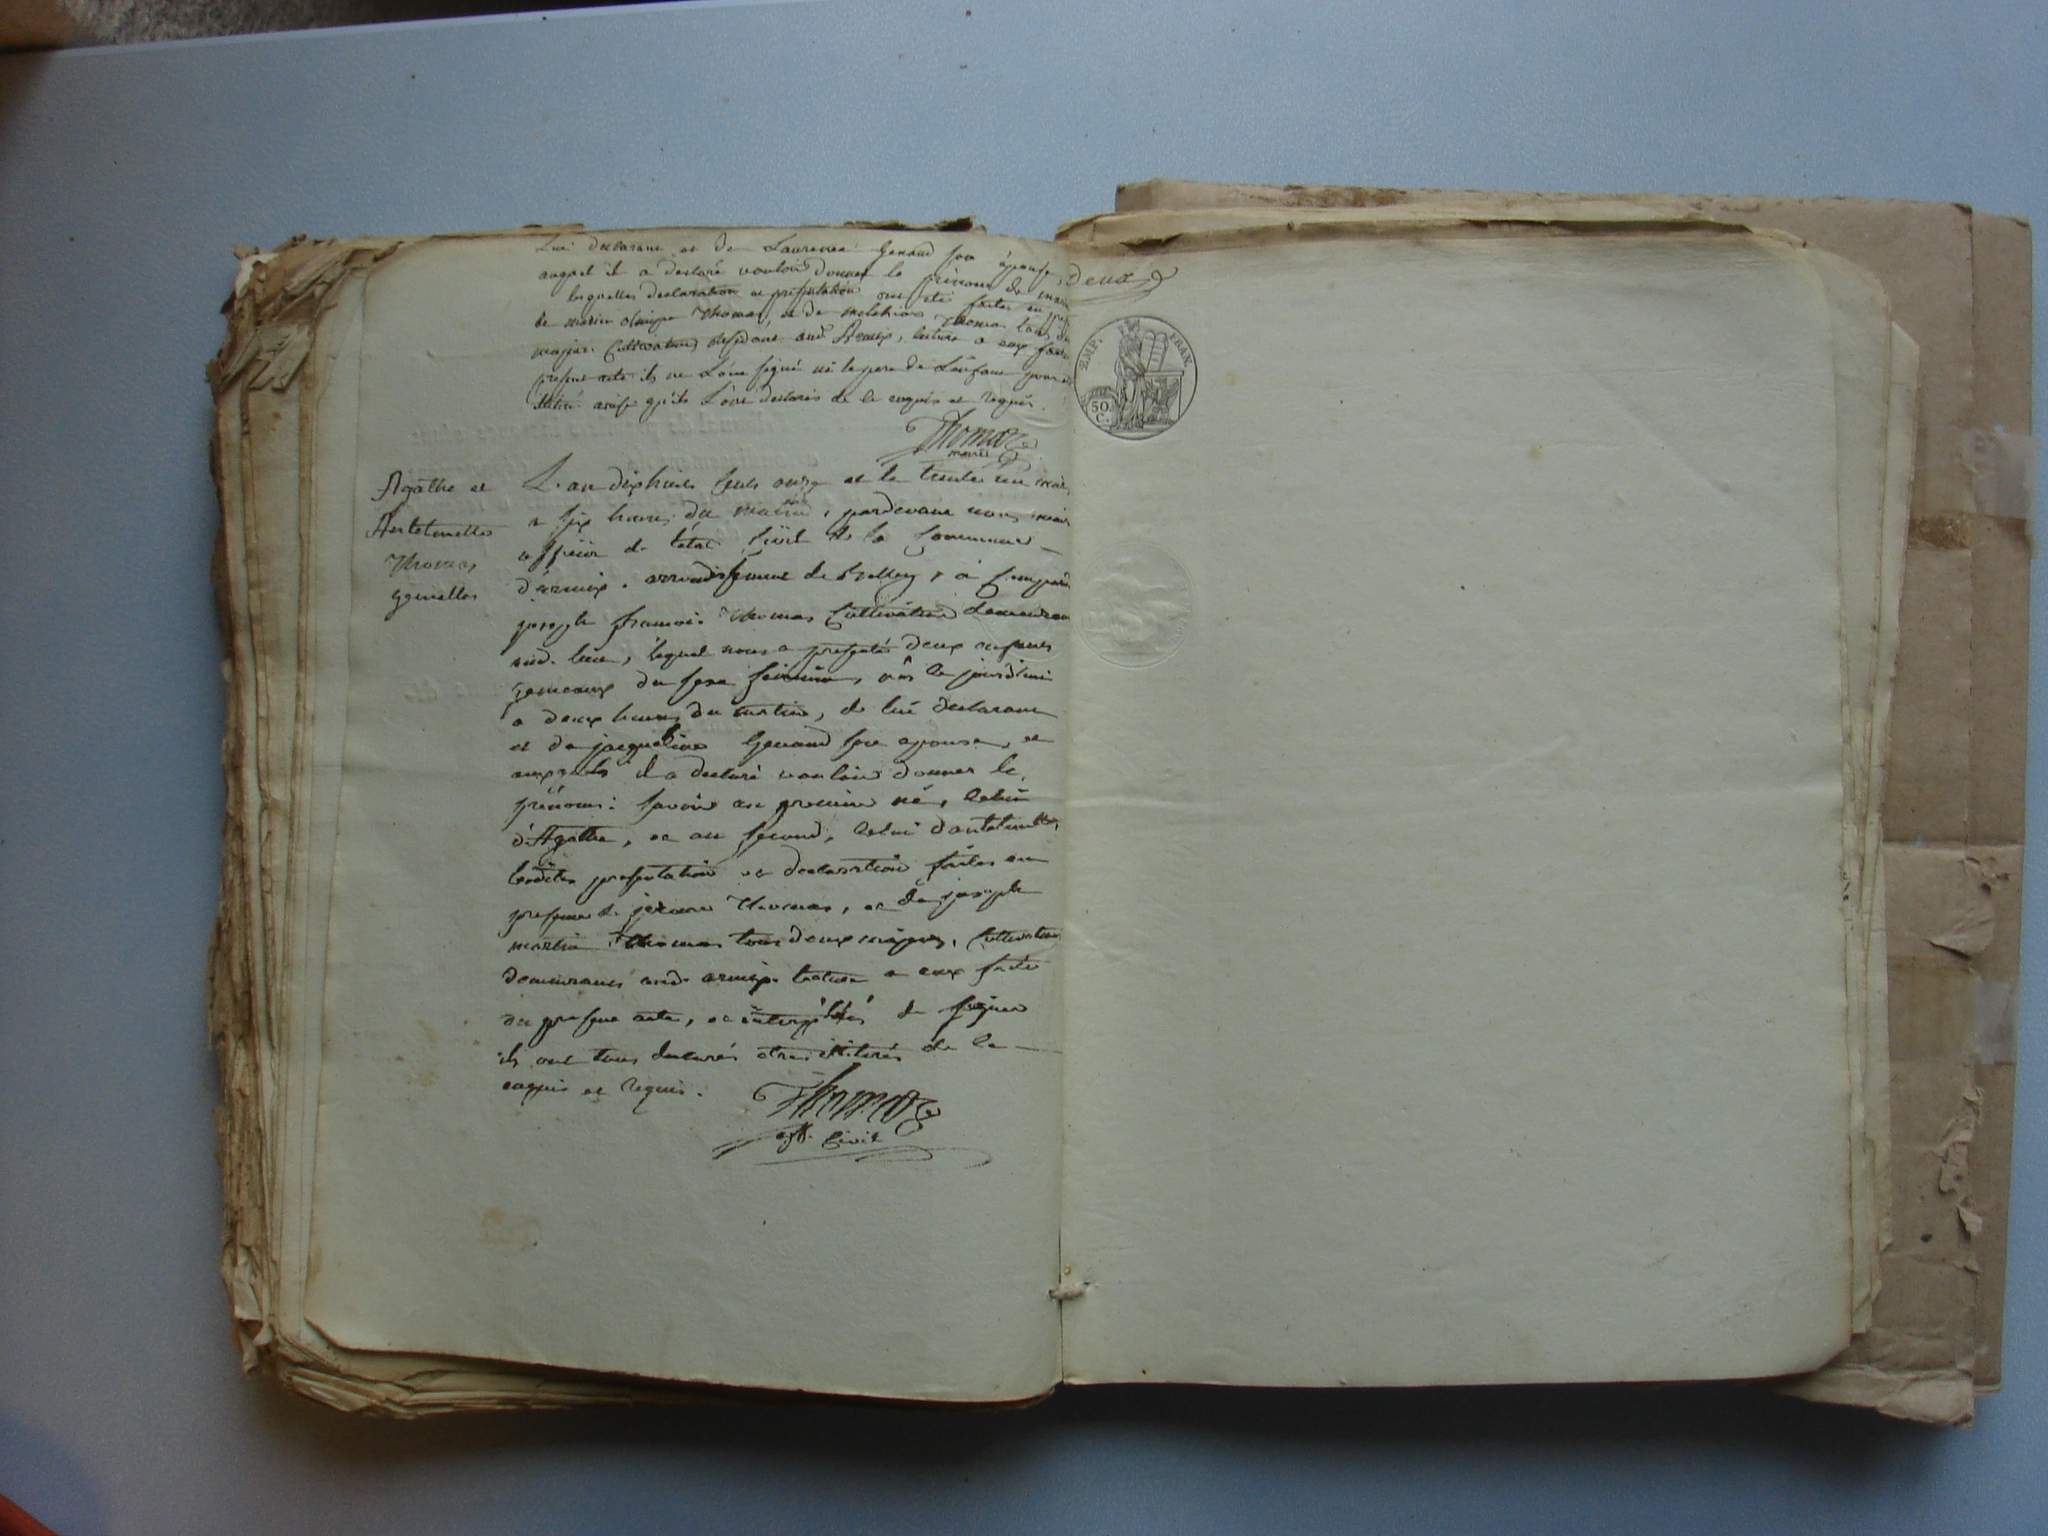 Lui declarant et de Laurence Genaud son épouse,
auquel il a déclaré vouloir donner le prénom de
lesquelles declaration et présentation ont été faites en
de Thomas, et de Thomas tous
majeur Cultivateurs résidant aud. Arnix, lecture a eux faite
présent acte ils ne L'ont signé ni le père de L'enfant pour
illitéré ainsi qu'ils L'ont déclarés de ce enquis et requis.
Thomas
maire
Agathe et
Antoinette
Thomas
gemelles
L'an dix huit cent onze et le trente un mai
a six heures du matin, pardevant nous maire
officier de l'état Civil de la Commune
d'arnix. arrondissement de Belley, a Comparu
joseph francois Thomas Cultivateur demeurant
aud. lieu, lequel nous a presentés deux enfants
jemeaux du sexe féminin, nés le jourd'hui
a deux heures du matin, de lui declarant
et de jacqueline Genaud son epouse, et
auxquels il a declaré vouloir donner le
prénoms: savoir au premier né, Celui
d'Agathe, et au second, Celui d'antoinette,
lesdites presentation et declaration faites en
presence de Thomas, et de joseph
martin Thomas tous deux majeurs, Cultivateurs
demeurants aud. arnix lecture a eux faite
du present acte, et interpellés de signer
ils ont tous declarés etre illiterés de ce
enquis et requis.
Thomas
off. Civil
deux
EMP. FRAN.
50
C.